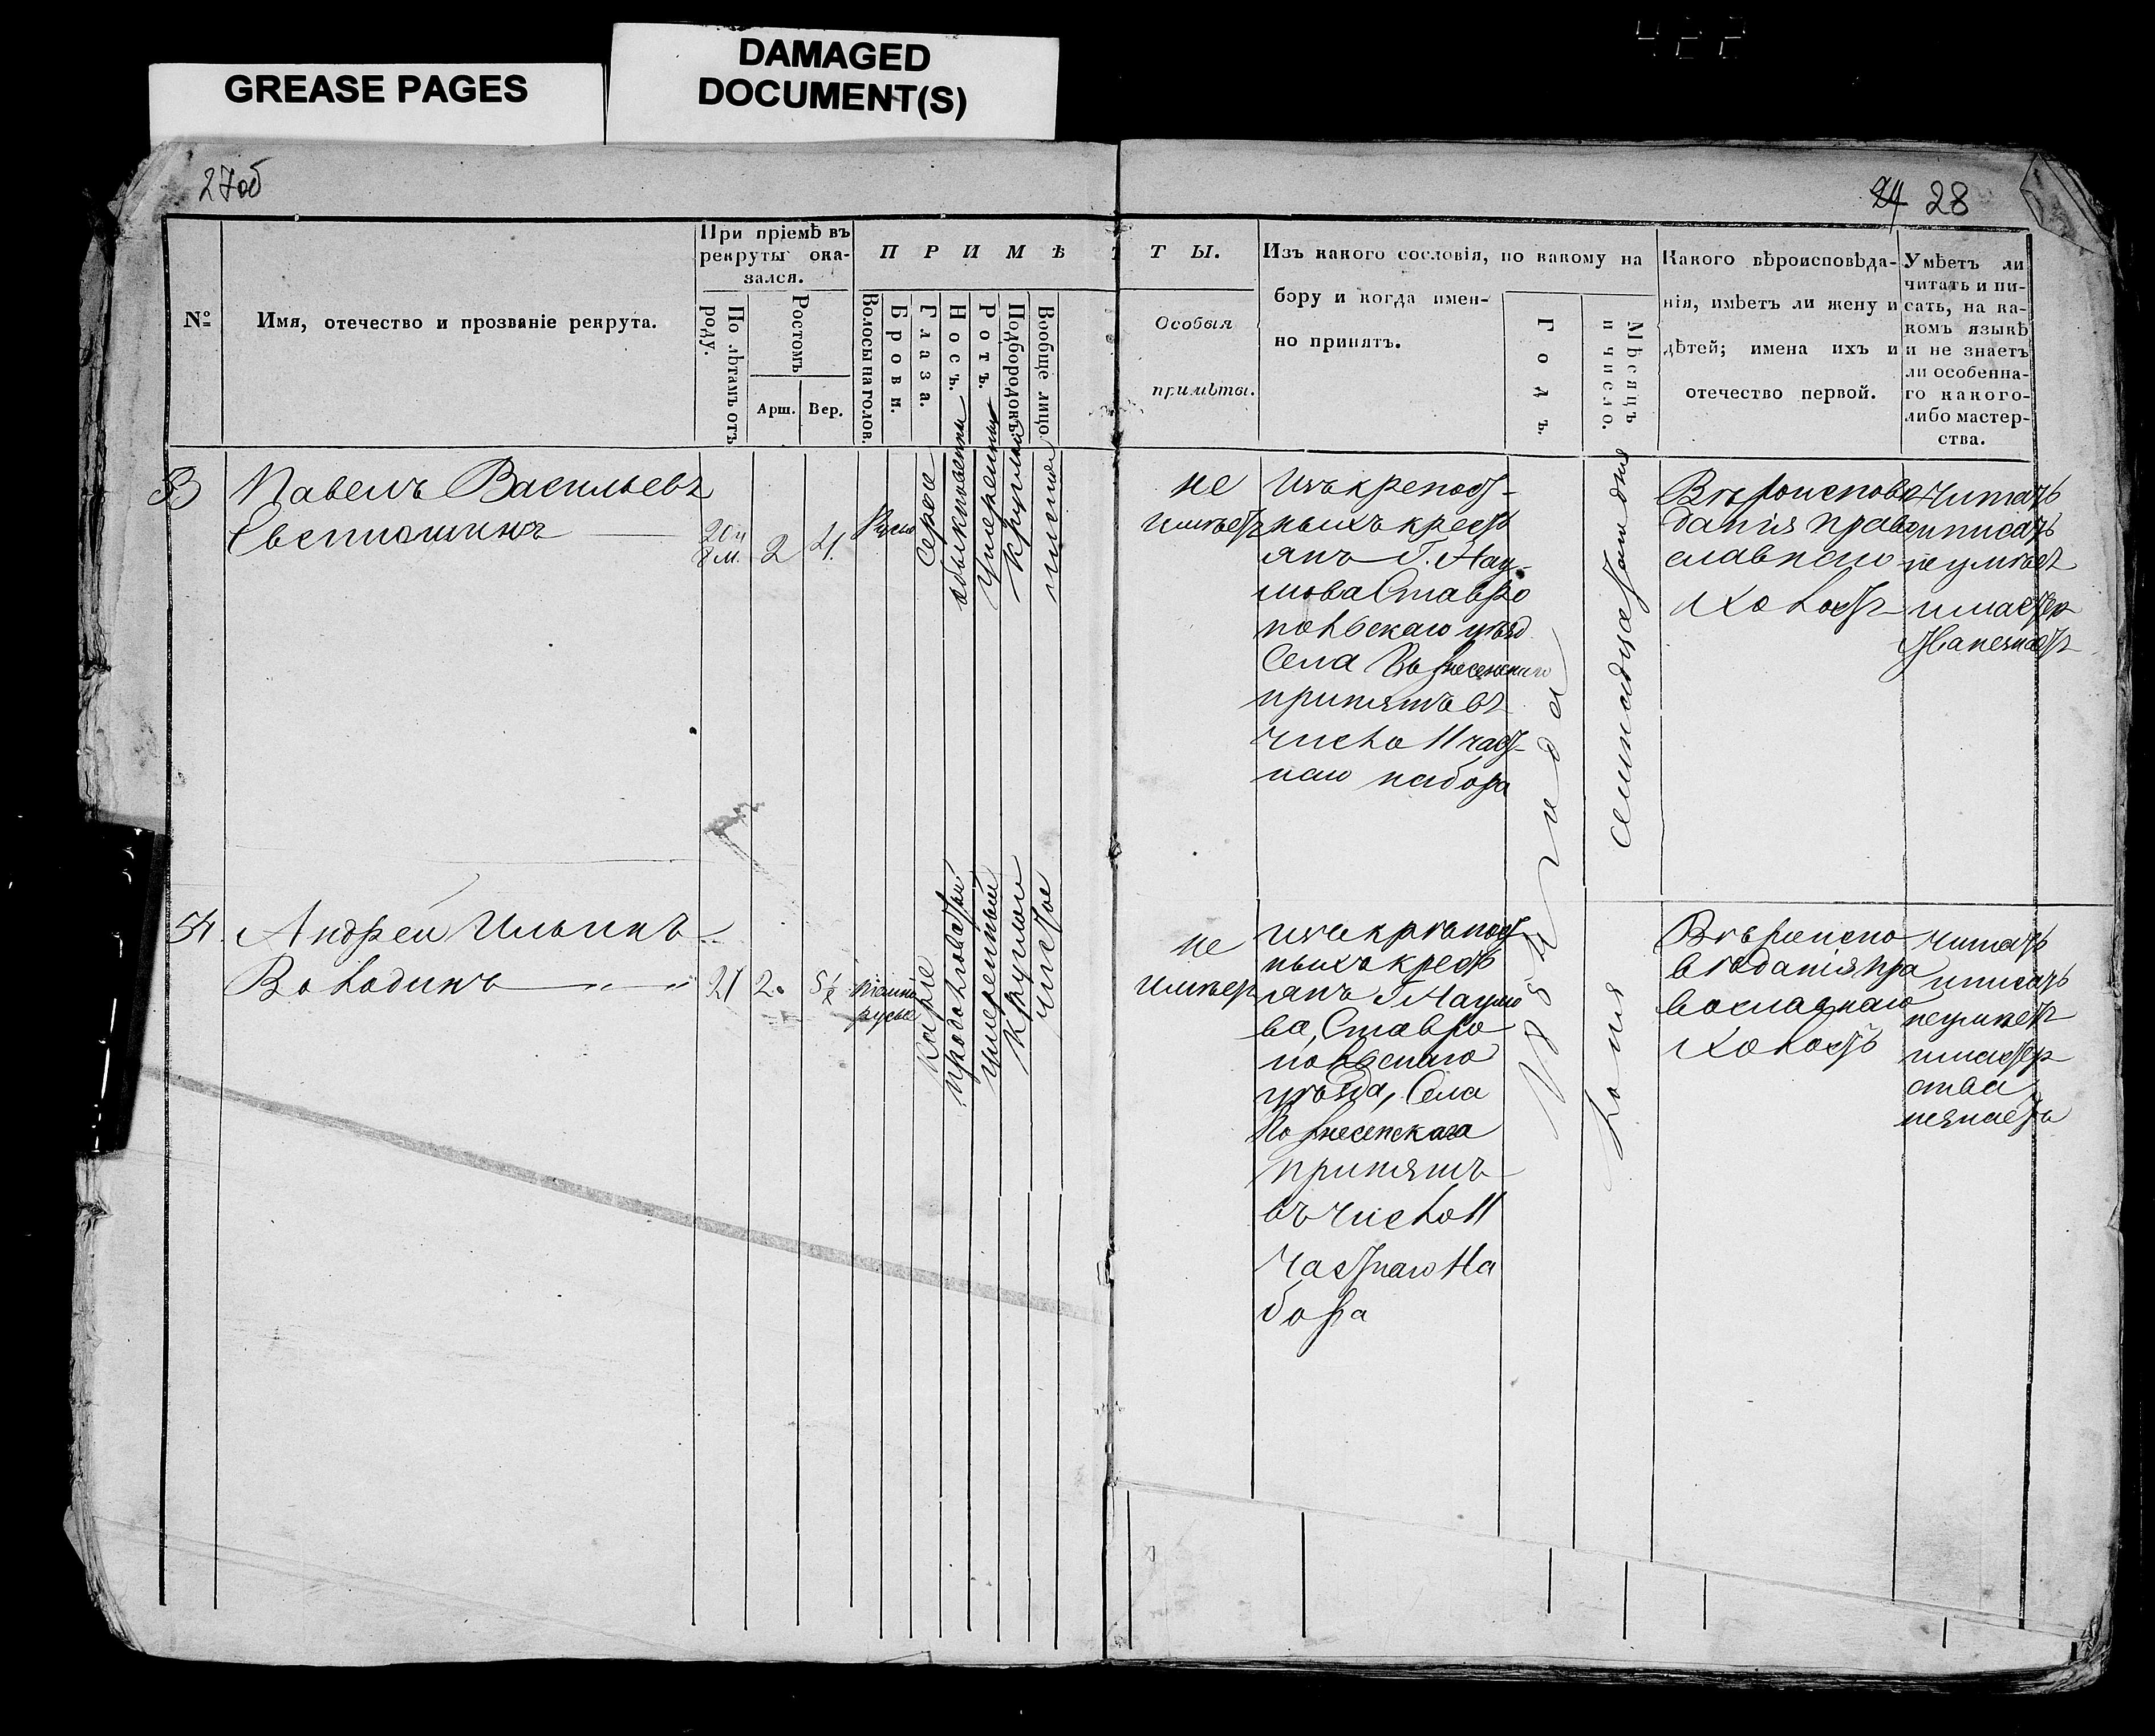 GREASE PAGES
DAMAGED
DOCUMENT(S)
422
27об
24 28
№
Имя, отечество и прозваніе рекрута.
При пріемѣ въ
рекруты ока-
зался.
По лѣтамъ отъ
роду.
Ростомъ
Арш.
Вер.
ПРИМѢТЫ.
Волосы на голов.
Брови.
Глаза.
Носъ.
Ротъ.
Подбородокъ
Вообще лицо
Особыя
примѣты.
Изъ какого сословія, по какому на
бору и когда имен-
но принятъ.
Годъ.
Мѣсяцъ
и число.
Какого вѣроисповѣда-
нія, имѣетъ ли жену и
дѣтей; имена ихъ и
отечество первой.
Умѣетъ ли
читать и пи-
сать, на ка-
комъ языкѣ
и не знаетъ
ли особенна-
го какого-
либо мастер-
ства.
Павелъ Васильевъ
Светюшкинъ
2
4
Русые
серые
обыкновенны
умеренный
круглый
чистое
не
имѣетъ
изъ крепост-
ныхъ крест
янъ Г. Нау-
мова Ставро
польскаго уѣзд
Села Вознесенскаго
принятъ въ
число 11 част-
наго набора
семнадцатаго дня
Вѣроисповѣ
данія право
славнаго
Холостъ
читать
и писать
не умѣетъ
и мастер
54.
Андрей Ильинъ
Володинъ
21
2
5½
темно
русые
каріе
продолговатый
умеренный
круглой
чистое
не
имѣетъ
изъ крѣпост
ныхъ крест
янъ Г Наумо
ва, Ставро
польскаго
уѣзда, Села
Вознесенскаго
принятъ
въ число 11
частнаго На
бора
1854 года
Вѣроиспо
вѣданія пра
вославнаго
Холостъ
читать
и писать
не умѣетъ
и мастер
ства и
не знаетъ